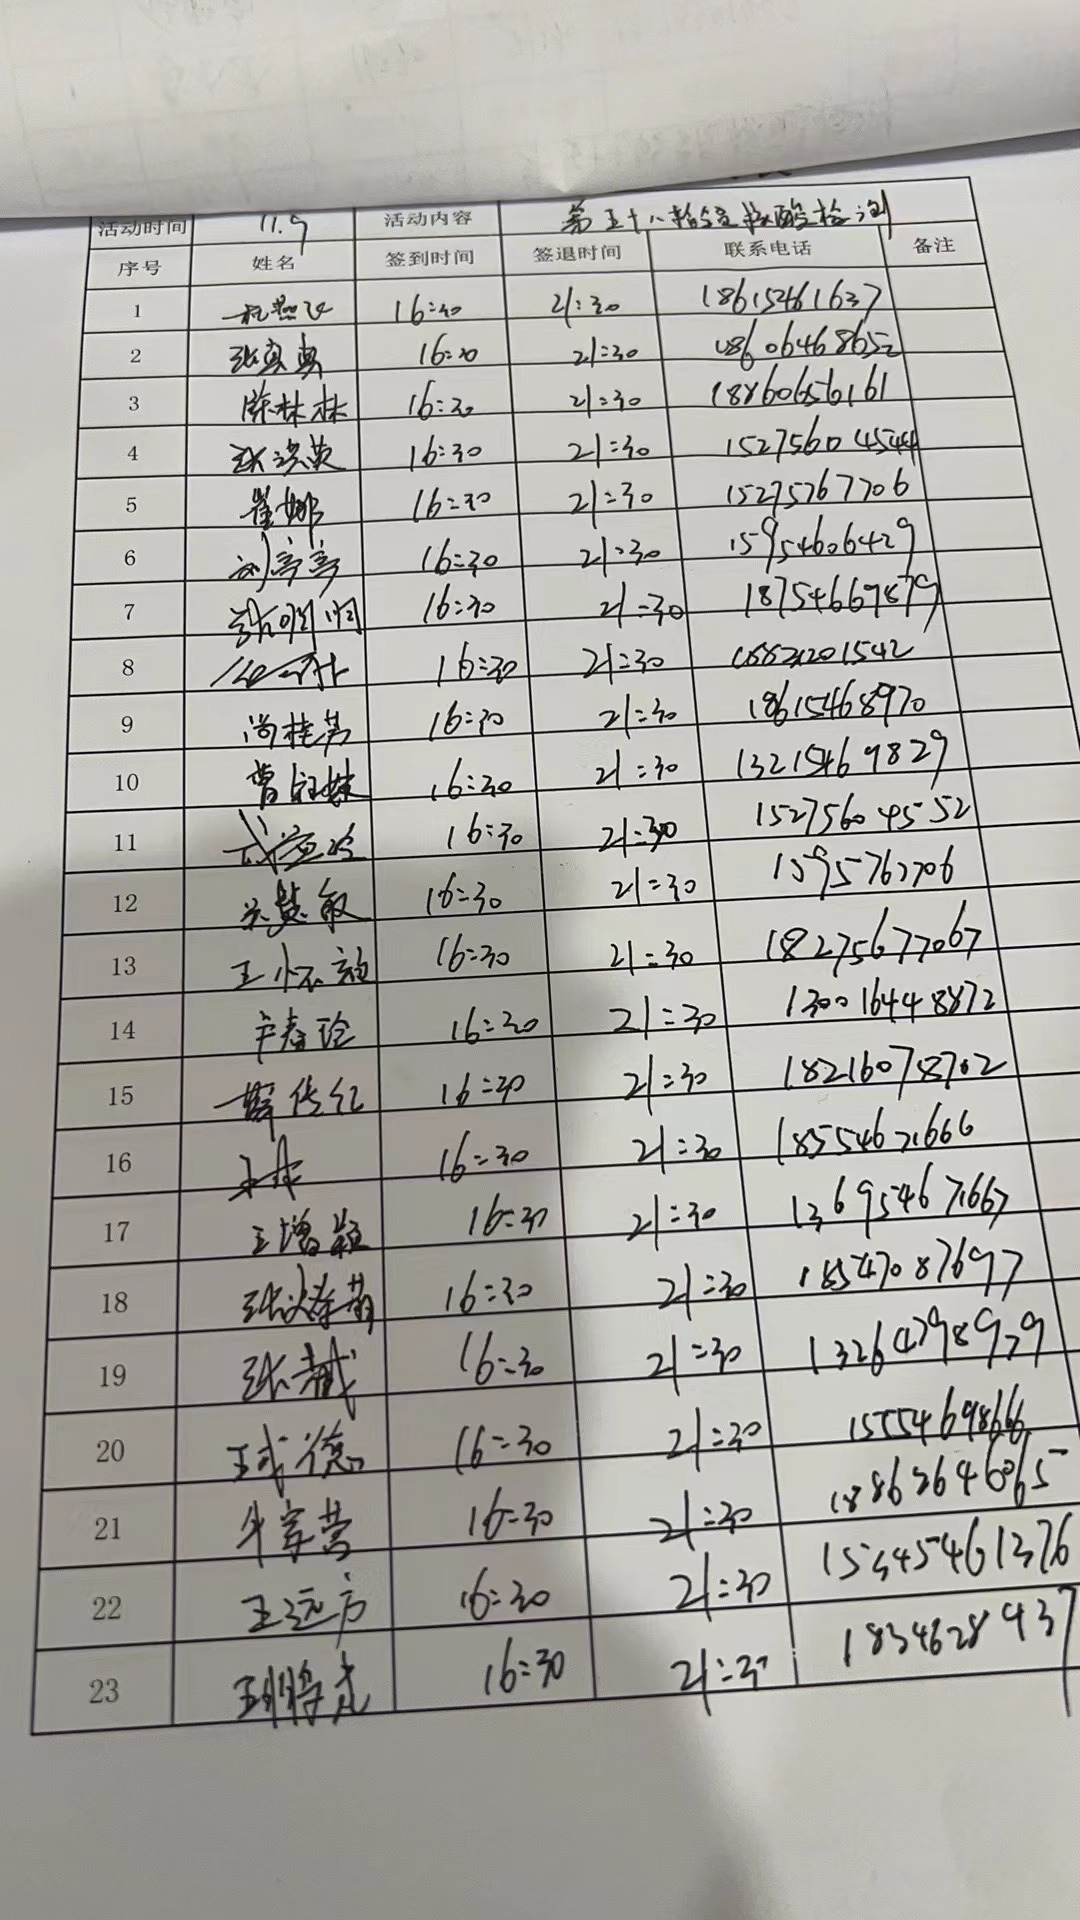 活动时间 11.9 活动内容 第五十八轮全员核酸检测
序号 姓名 签到时间 签退时间 联系电话 备注
1 16:30 21:30 18615461637
2 张真真 16:30 21:30 18606468652
3 陈林林 16:30 21:30 188606656161
4 张洪英 16:30 21:30 15275604544
5 崔娜 16:30 21:30 15275767706
6 刘亭亭 16:30 21:30 15954606429
7 16:30 21:30 18754669879
8 16:30 21:30
9 尚桂芳 16:30 21:30 18615468970
10 曹钰姝 16:30 21:30 13215469829
11 16:30 21:30 15275604552
12 16:30 21:30 1595767706
13 王怀颖 16:30 21:30 18275677067
14 辛春玲 16:30 21:30 130016448872
15 薛传红 16:30 21:30 18216078702
16 16:30 21:30 18554671666
17 王增颖 16:30 21:30 13695467667
18 16:30 21:30 18547087697
19 16:30 21:30 13264798979
20 王式德 16:30 21:30 15554698666
21 牛家营 16:30 21:30 18863646065
22 王远方 16:30 21:30 153454461376
23 16:30 21:30 1834628937